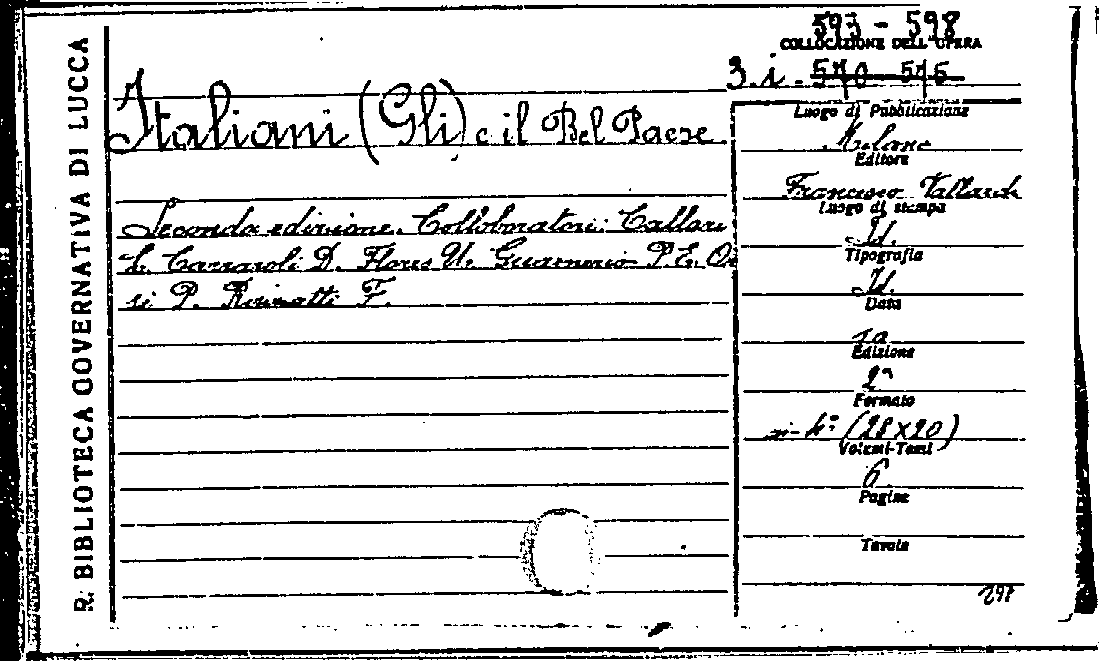 R. BIBLIOTECA GOVERNATIVA DI LUCCA
593 - 598
COLLOCAZIONE DELL'OPERA
3. i. 570-575
Italiani (Gli) e il Bel Paese
Seconda edizione. Collaboratori: Callari
L. Carraroli D. Flores U. Guarnerio P. E. Or
si P. Rosinatti F.
Luogo di Pubblicazione
Milano
Editore
Francesco Vallardi
Luogo di stampa
Id.
Tipografia
Id.
Data
Edizione
2ª
Formato
in-4º (28x20)
Volumi-Tomi
6
Pagine
Tavole
297